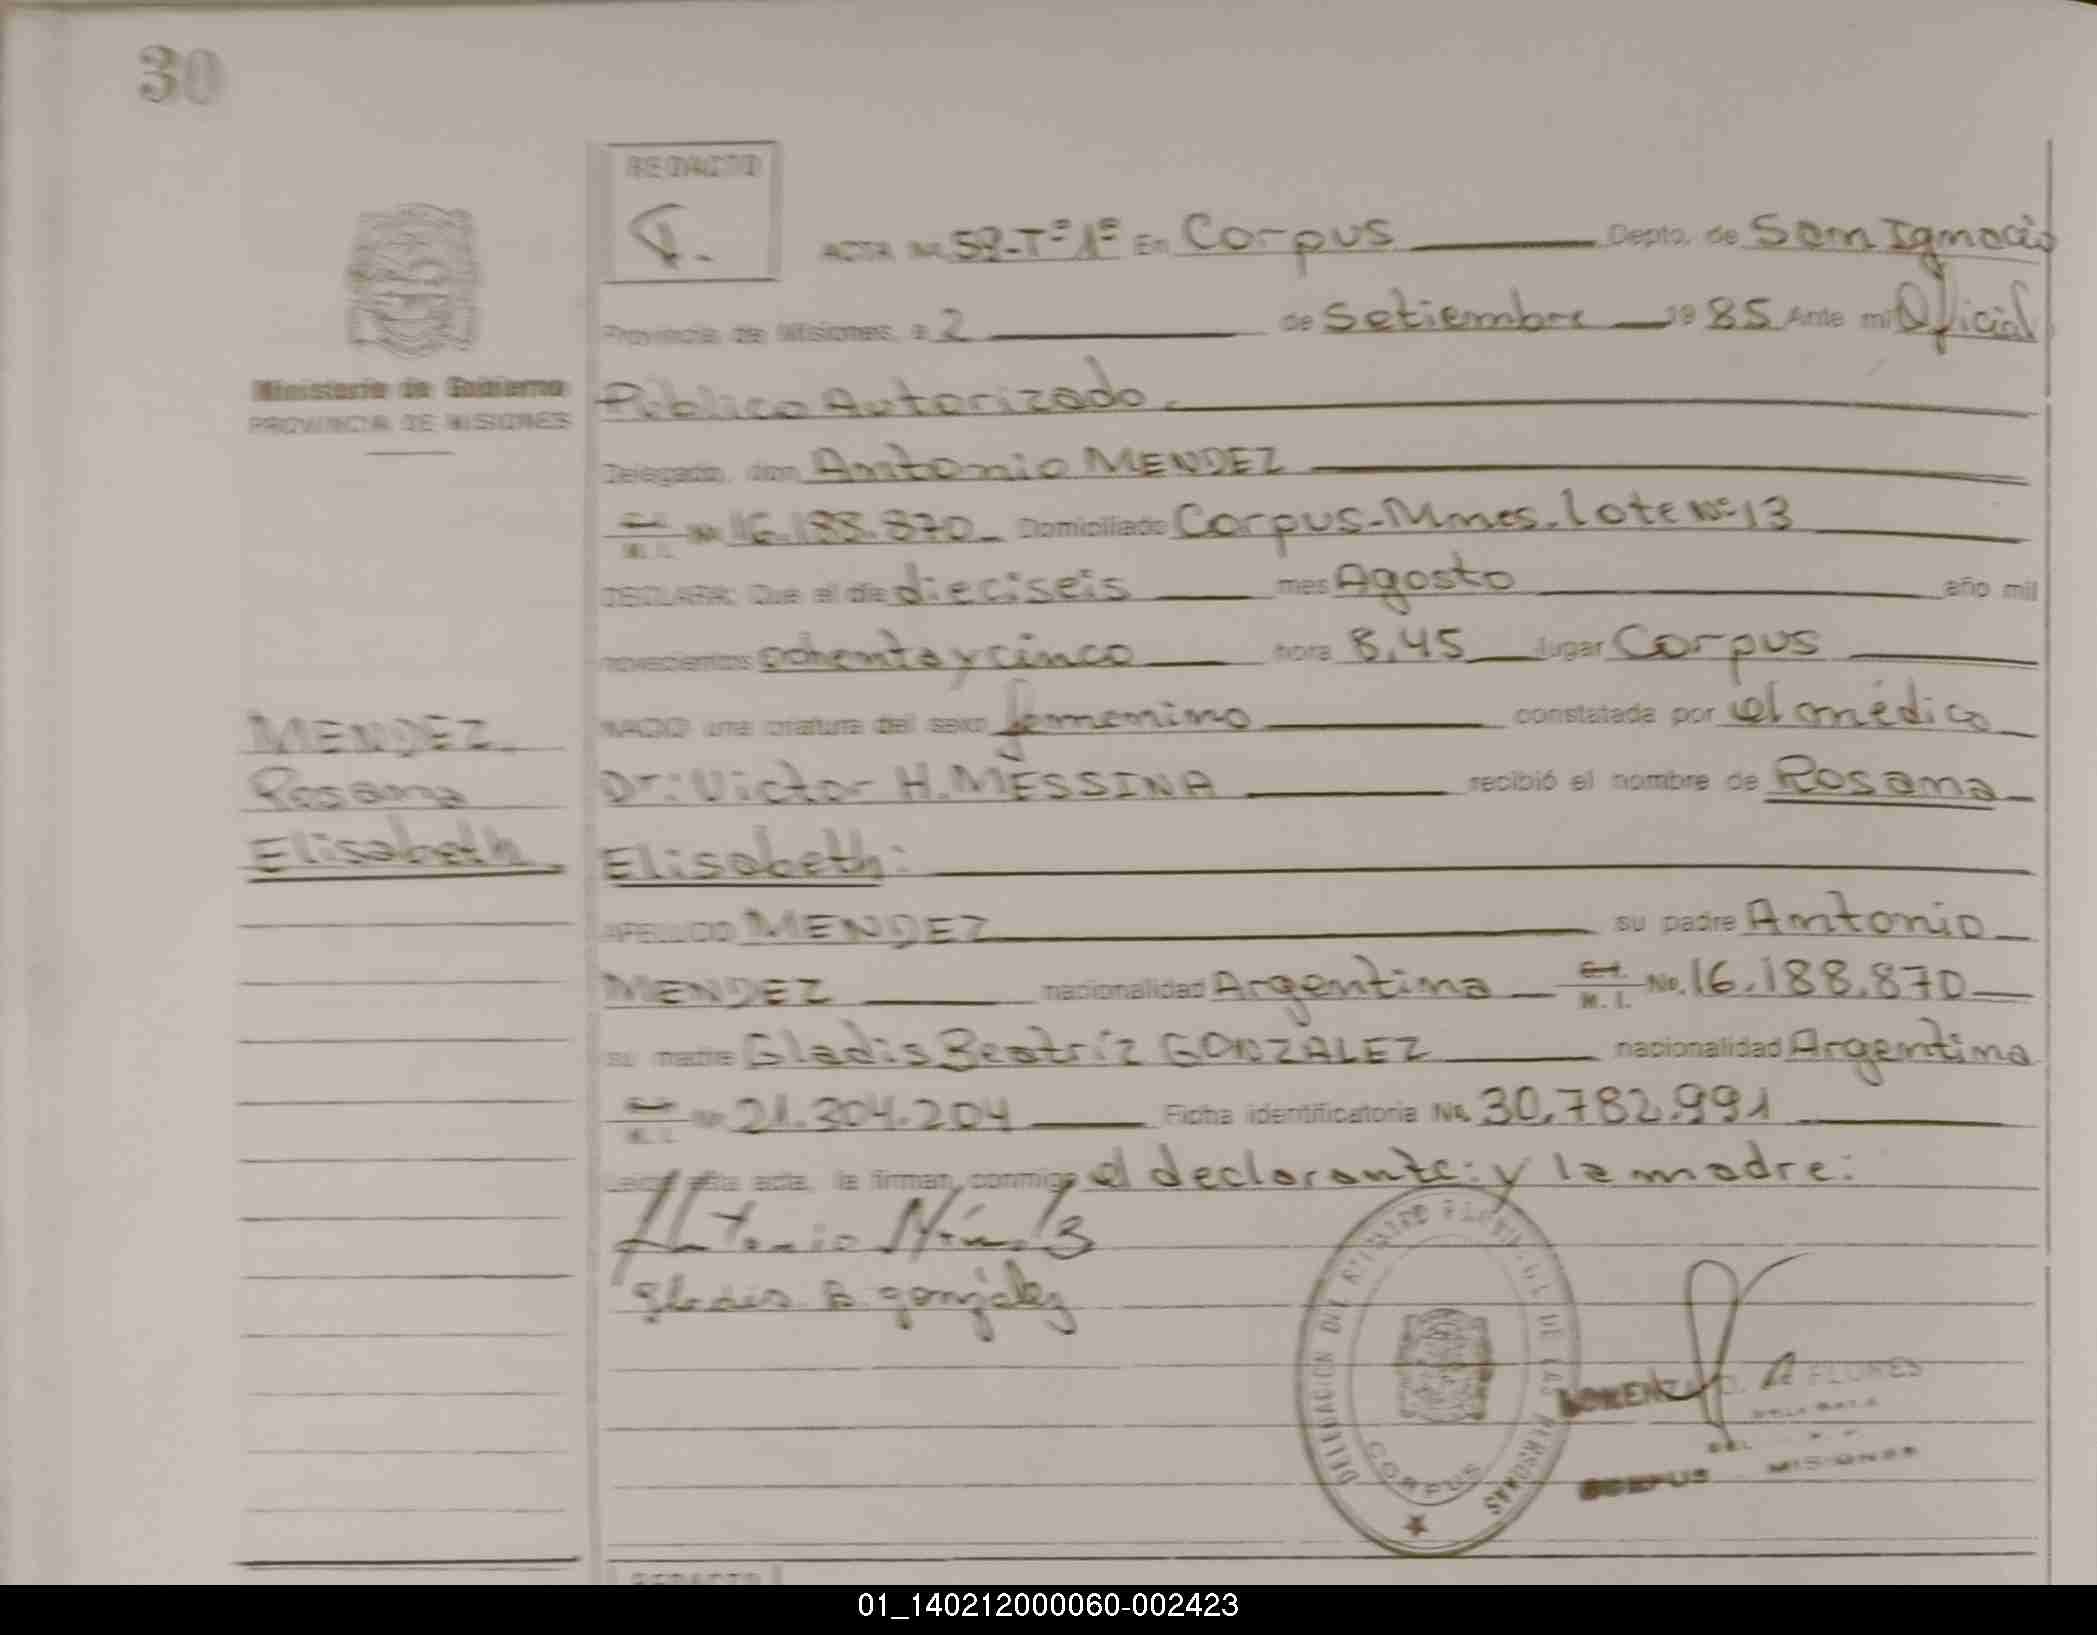 30
REDACTO
ACTA No. 59-Tº1º En Corpus Depto. de San Ignacio
Provincia de Misiones, a 2 de Setiembre 1985 Ante mi Oficial
Ministerio de Gobierno
PROVINCIA DE MISIONES
Público Autorizado.
Delegado, don Antonio MENDEZ
M. I. No. 16.188.870 Domiciliado Corpus-Mnes. lote Nº 13
DECLARA: Que el día dieciseis mes Agosto año mil
novecientos ochenta y cinco hora 8,45 lugar Corpus
NACIO una criatura del sexo femenino constatada por el médico
MENDEZ
Rosana
Elisabeth
Dr: Victor H. MESSINA recibió el nombre de Rosana
Elisabeth:
APELLIDO MENDEZ su padre Antonio
MENDEZ nacionalidad Argentina M. I. No. 16.188.870
su madre Gladis Beatríz GONZALEZ nacionalidad Argentina
M. I. No. 21.304.204 Ficha identificatoria No. 30.782.991
Leida esta acta, la firman conmigo el declarante: y la madre:
Antonio
Gladis B gonzalez
DELEGACION DEL REGISTRO PROVINCIAL DE LAS PERSONAS
CORPUS
FLORES
CORPUS MISIONES
REDACTO
01_140212000060-002423